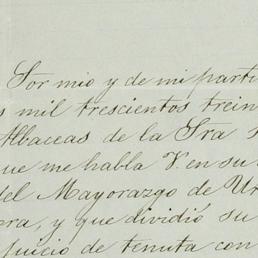 Por mio y de mi parti
s mil trescientos trein
Albaceas de la Sra
ue me habla V. en su
del Mayorazgo de Ur
ra, y que dividió su
juicio de tenuta con